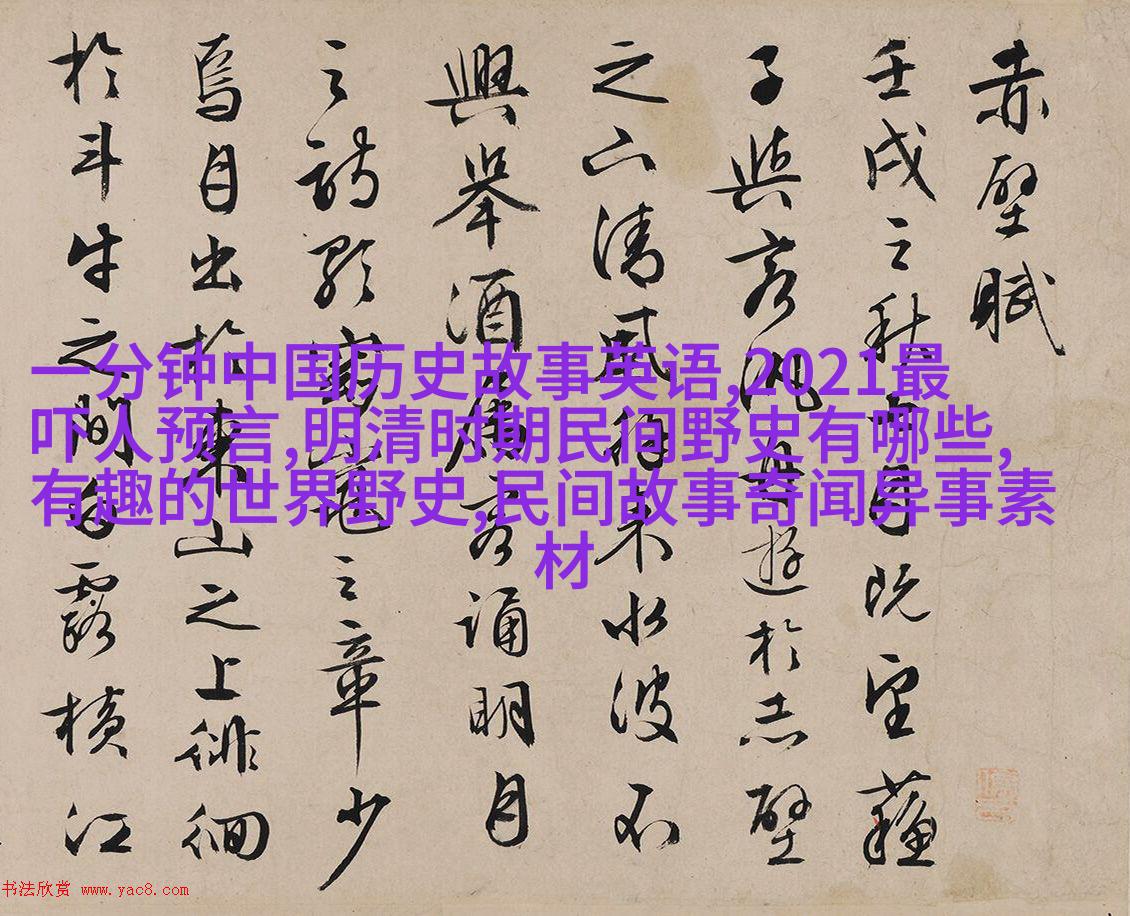 赤壁賦
壬戌之秋七月既望蘇
子與客汎舟遊於赤壁
之下清風徐來水波不
興舉酒屬客誦明月
之詩歌窈窕之章少
焉月出於東山之上徘徊
於斗牛之間白露橫江
一分钟中国历史故事英语,2021最
吓人预言,明清时期民间野史有哪些,
有趣的世界野史,民间故事奇闻异事素
材
书法欣赏 www.yac8.com